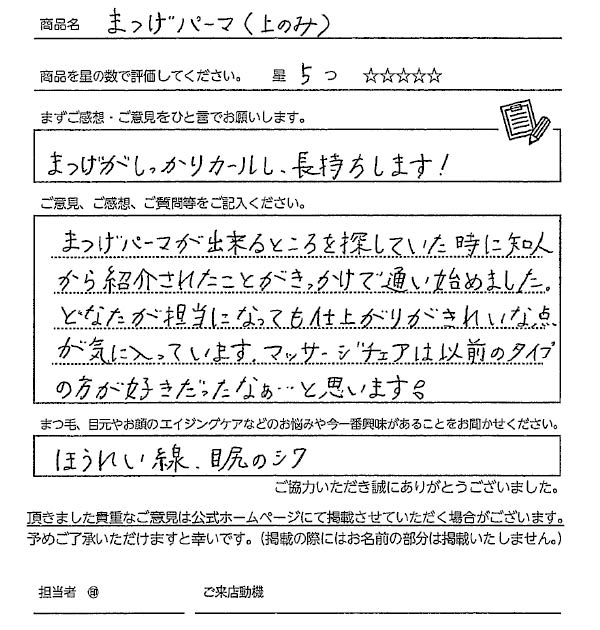 商品名 まつげパーマ(上のみ)
商品を星の数で評価してください。 星 5 つ ☆☆☆☆☆
まずご感想・ご意見をひと言でお願いします。
まつげがしっかりカールし、長持ちします!
ご意見、ご感想、ご質問等をご記入ください。
まつげパーマが出来るところを探していた時に知人
から紹介されたことがきっかけで通い始めました。
どなたが担当になっても仕上がりがきれいな点
が気に入っています。マッサージチェアは以前のタイプ
の方が好きだったなぁ…と思います。
まつ毛、目元やお顔のエイジングケアなどのお悩みや今一番興味があることをお聞かせください。
ほうれい線、目尻のシワ
ご協力いただき誠にありがとうございました。
頂きました貴重なご意見は公式ホームページにて掲載させていただく場合がございます。
予めご了承いただけますと幸いです。(掲載の際にはお名前の部分は掲載いたしません。)
担当者 ㊞ ご来店動機